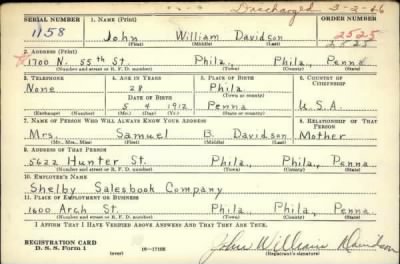 Discharged 3-2-46
SERIAL NUMBER 1. NAME (Print) ORDER NUMBER
1158 John William Davidson 2525
(First) (Middle) (Last) 2525
2. ADDRESS (Print)
1700 N. 55th St. Phila, Phila, Penna
(Number and street or R. F. D. number) (Town) (County) (State)
3. TELEPHONE 4. AGE IN YEARS 5. PLACE OF BIRTH 6. COUNTRY OF CITIZENSHIP
None 28 Phila
DATE OF BIRTH (Town or county)
5 4 1912 Penna U.S.A.
(Mo.) (Day) (Yr.) (State or country)
7. NAME OF PERSON WHO WILL ALWAYS KNOW YOUR ADDRESS 8. RELATIONSHIP OF THAT PERSON
Mrs. Samuel B. Davidson Mother
(Mr., Mrs., Miss) (First) (Middle) (Last)
9. ADDRESS OF THAT PERSON
5622 Hunter St. Phila, Phila, Penna.
(Number and street or R. F. D. number) (Town) (County) (State)
10. EMPLOYER'S NAME
Shelby Salesbook Company
11. PLACE OF EMPLOYMENT OR BUSINESS
1600 Arch St. Phila, Phila, Penna.
(Number and street or R. F. D. number) (Town) (County) (State)
I AFFIRM THAT I HAVE VERIFIED ABOVE ANSWERS AND THAT THEY ARE TRUE.
REGISTRATION CARD
D. S. S. Form 1 (over) 16-17105 John William Davidson
(Registrant's signature)